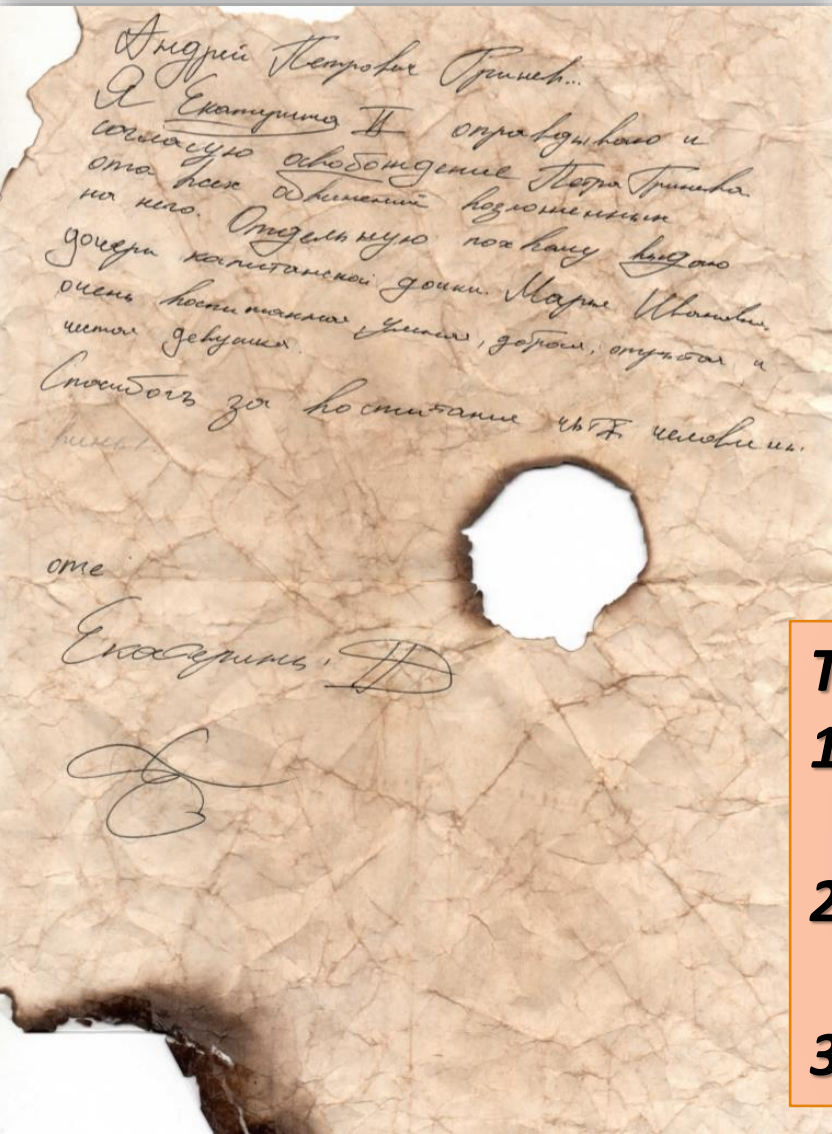 Андрей Петрович Гринев...
Я Екатерина II оправдываю и
согласую освобождение Петра Гринева
ота всех обвинений возложенных
на него. Отдельную похвалу выдаю
дочери капитанской дочки. Марье Ивановне.
очень воспитанная, умная, добрая, открытая и
чистая девушка.
Спасибогъ за воспитание человека.
оте
Екатерины. II
Т
1
2
3